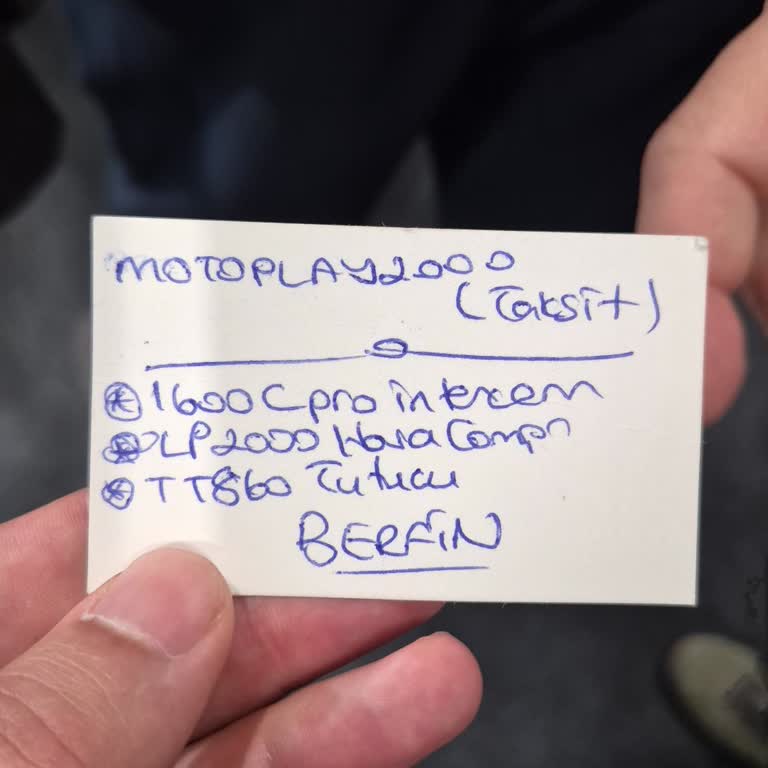 MOTOPLAY2000
(Taksit)
1600C pro intercem
LP2000 Hava Compr
TT860 Tutucu
BERFİN